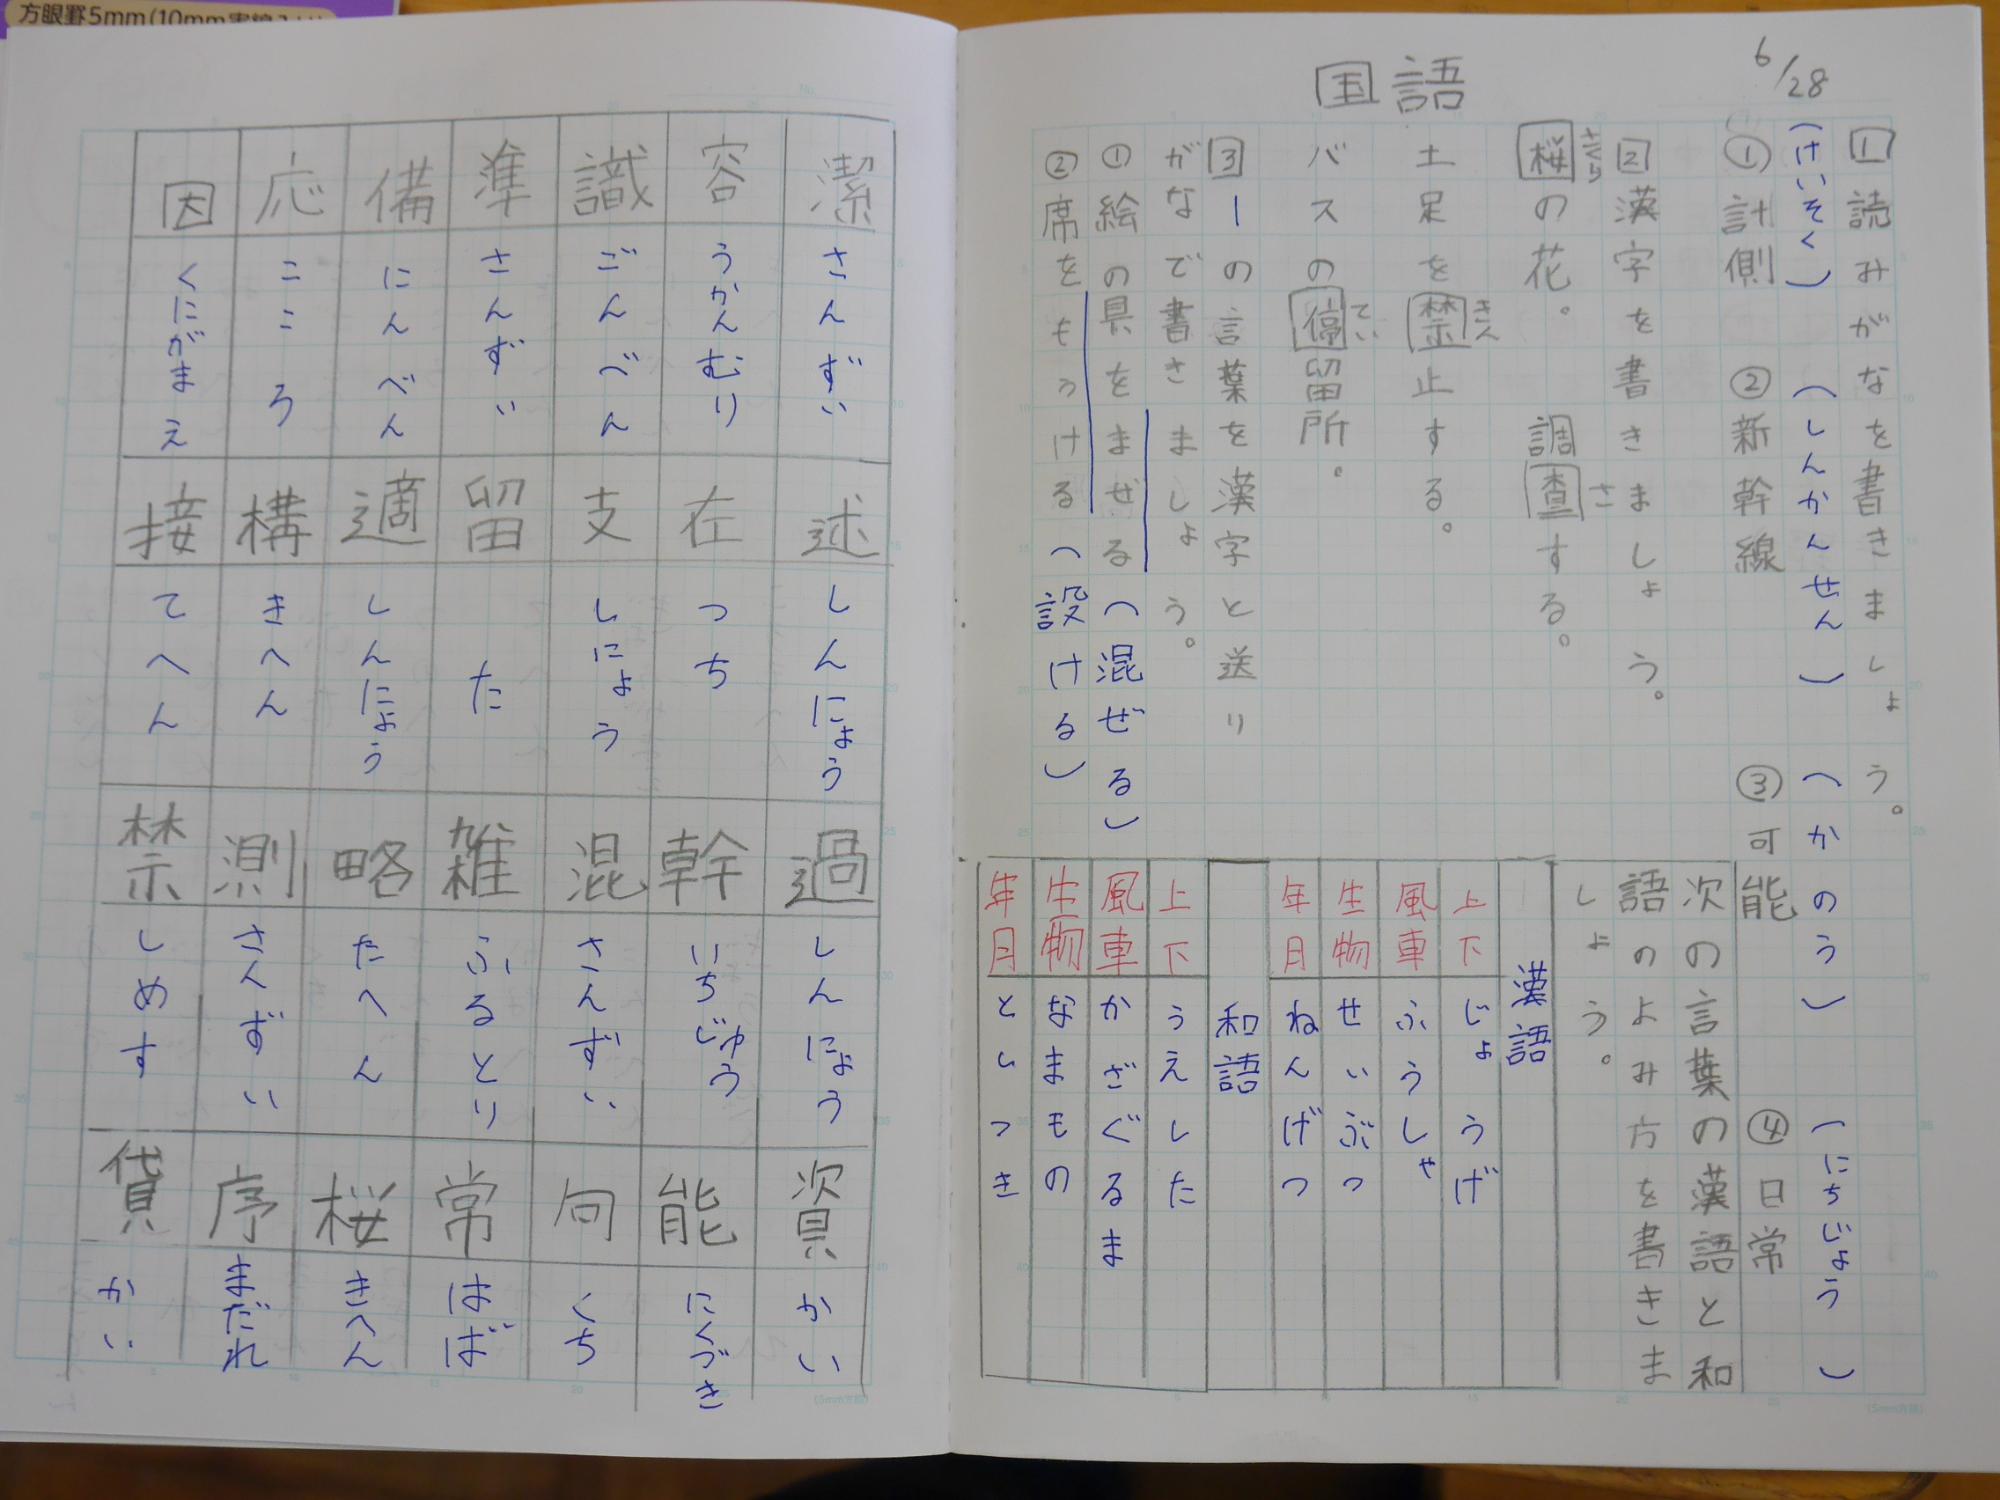 方眼罫5mm(10mm実線入り)
国語
6/28
1 読みがなを書きましょう。
(けいそく) (しんかんせん) (かのう) (にちじょう)
①計側 ②新幹線 ③可能 ④日常
2 漢字を書きましょう。
さくら さ
桜の花。 調査する。
きん
土足を禁止する。
てい
バスの停留所。
3 ーの言葉を漢字と送り
がなで書きましょう。
①絵の具をまぜる(混ぜる)
②席をもうける(設ける)
次の言葉の漢語と和
語のよみ方を書きま
しょう。
漢語
上下 じょうげ
風車 ふうしゃ
生物 せいぶつ
年月 ねんげつ
和語
上下 うえした
風車 かざぐるま
生物 なまもの
年月 としつき
(5mm方眼)
潔 さんずい
容 うかんむり
識 ごんべん
準 さんずい
備 にんべん
応 こころ
因 くにがまえ
述 しんにょう
在 つち
支 しにょう
留 た
適 しんにょう
構 きへん
接 てへん
過 しんにょう
幹 いちじゅう
混 さんずい
雑 ふるとり
略 たへん
測 さんずい
禁 しめす
資 かい
能 にくづき
向 くち
常 はば
桜 きへん
序 まだれ
貸 かい
(5mm方眼)